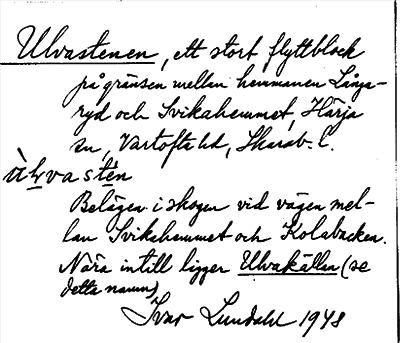 Ulvastenen, ett stort flyttblock
på gränsen mellan hemmanen Långa-
ryd och Svikahemmet, Härja
sn, Vartofta hd, Skarab. l.
ùlvastén
Belägen i skogen vid vägen mel-
lan Svikahemmet och Kolabacken.
Nära intill ligger Ulvakällan (se
detta namn)
Ivar Lundahl 1948